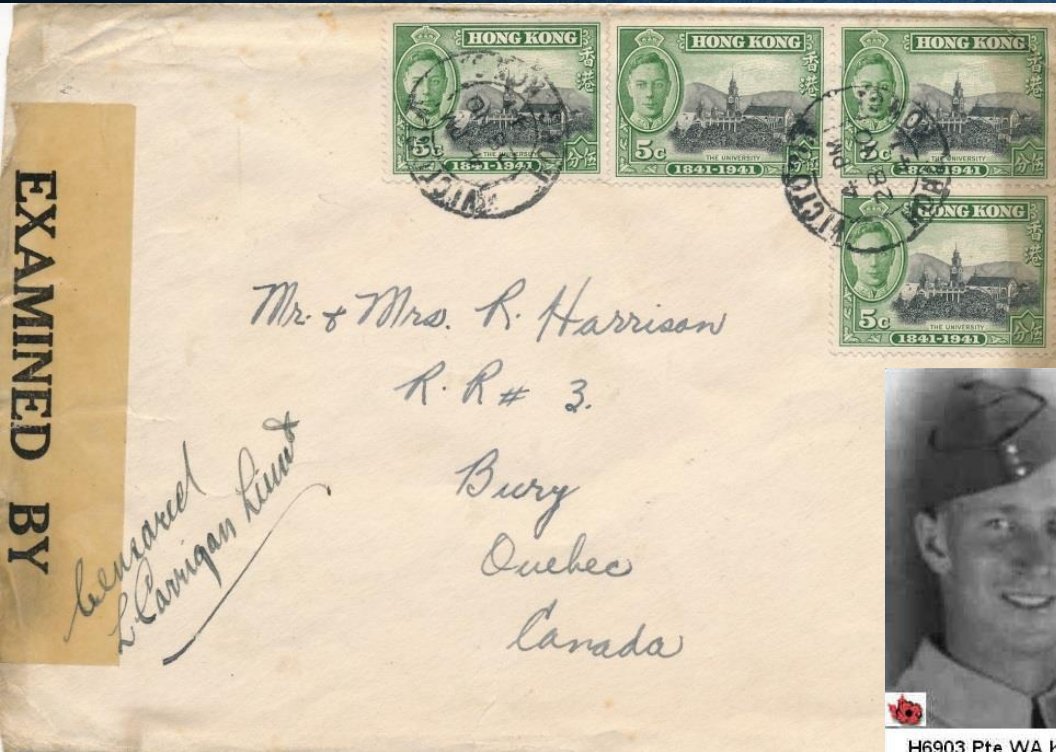 HONG KONG
香港
5c
THE UNIVERSITY
1841-1941
分伍
HONG KONG
香港
5c
THE UNIVERSITY
1841-1941
分伍
HONG KONG
香港
5c
THE UNIVERSITY
1841-1941
分伍
HONG KONG
香港
5c
THE UNIVERSITY
1841-1941
分伍
VICTORIA
4 PM
28 NO
HONG KONG
EXAMINED BY
Mr. & Mrs. R. Harrison
R. R # 3.
Bury
Quebec
Canada
Censored
L Carrigan Lieut
H6903 Pte WA